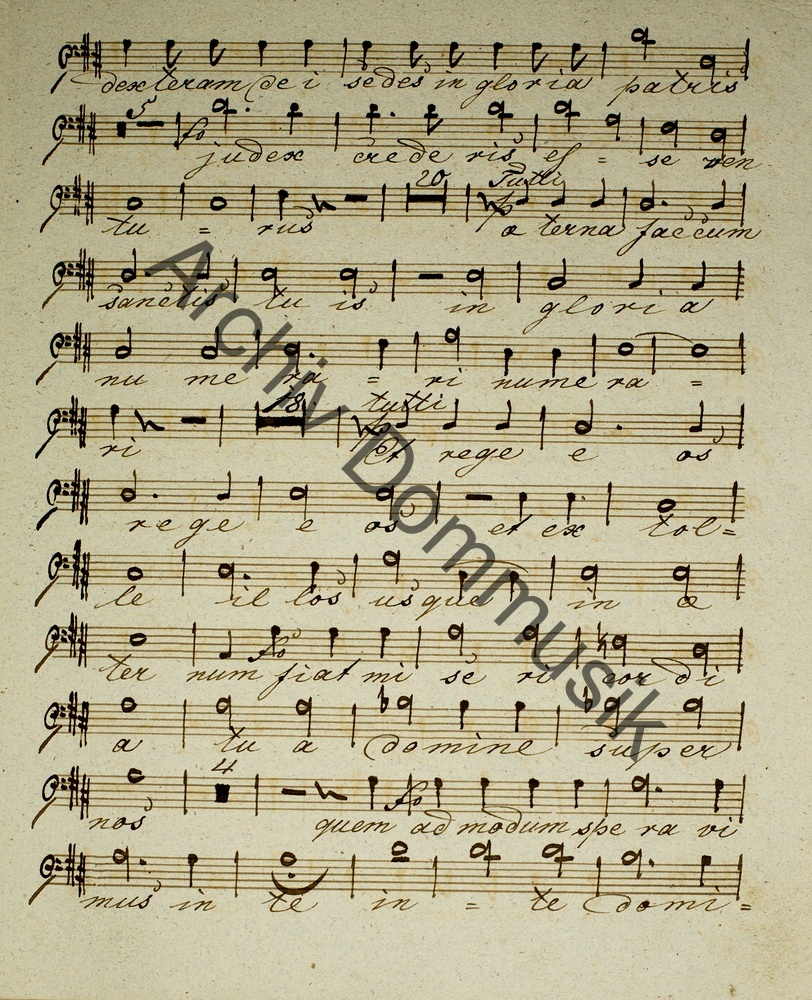 dexteram Dei sedes in gloria patris
5 fo
judex crede ris es = se ven
20 Tutti
tu = rus æ terna fac cum
sanctis tu is in glori a
nu me ra = ri nume ra =
18. tutti
ri Et rege e os
rege e os et ex tol=
le il los usque in æ
ter num fo fiat mi se ri cor di
a tu a Domine super
4
nos fo quem ad modum spe ra vi
mus in te in = te Domi=
Archiv Dommusik